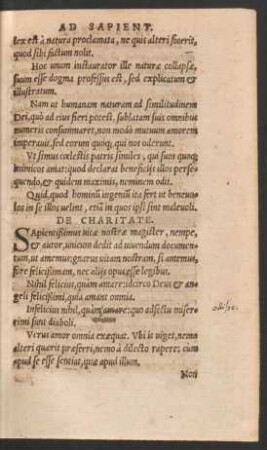 AD SAPIENT.
lex est à natura proclamata, ne quis alteri fecerit,
quod sibi factum nolit.
Hoc unum instaurator ille naturæ collapsæ,
suum esse dogma professus est, sed explicatum &
illustratum.
Nam ut humanam naturam ad similitudinem
Dei, quò ad eius fieri potest, sublatam suis omnibus
numeris consummaret, non modò mutuum amorem
imperauit, sed eorum quoq; qui nos oderunt.
Vt simus cœlestis patris similes, qui suos quoq;
inimicos amat: quod declarat beneficijs illos perse-
quendo, & quidem maximis, neminem odit.
Quid, quod hominũ ingenia ita fert ut beneuo-
los in se illos uelint, etiã in quos ipsi sint maleuoli.
DE CHARITATE.
SApientissimus uitæ nostræ magister, nempe,
& autor, unicum dedit ad uiuendum documen-
tum, ut amemus: gnarus uitam nostram, si amemus,
fore felicissimam, nec alijs opus esse legibus.
Nihil felicius, quàm amare: idcirco Deus & an-
geli felicissimi, quia amant omnia.
Infelicius nihil, quàm amare: quo adfectu miser-
rimi sunt diaboli.
odisse.
Verus amor omnia exæquat. Vbi is uiget, nemo
alteri quærit præferri, nemo à dilecto rapere: cùm
apud se esse sentiat, quæ apud illum.
Non